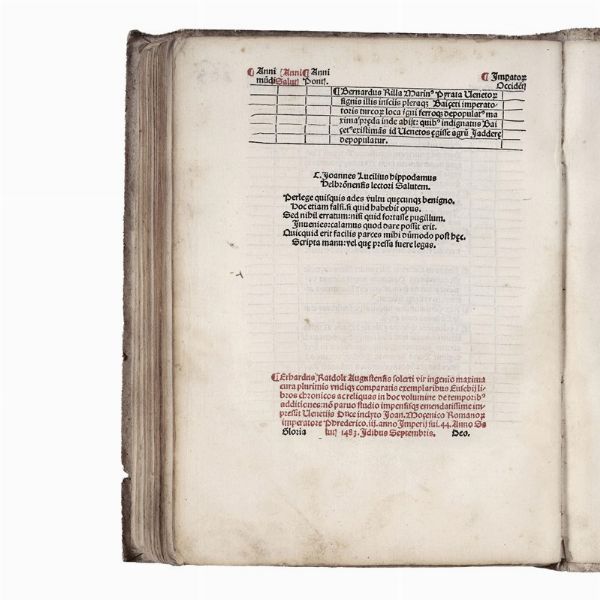 ¶ Anni ¶Anni ¶ Anni ¶ Impator
mūdi Salut Pont. Occidēt
¶ Bernardus Rilla Marin⁹ Pyrata Uenetoꝝ
signis illis insciis pleraqꝫ Baiçeti imperato-
toris turcoꝝ loca igni ferroqꝫ depopulat⁹ ma
xima pręda inde abijt: quib⁹ indignatus Bai
çet⁹ existimās id Uenetos ęgisse agrū Jadderę
depopulatur.
C. Joannes Lucilius hippodamus
Helbrōnensis lectori Salutem.
Perlege quisquis ades vultu quęcunqꝫ benigno.
Hoc etiam falsi. si quid habebit opus.
Sed nihil erratum: nisi quid fortasse pugillum.
Inuenies: calamus quod dare possit erit.
Quicquid erit facilis parces mihi dūmodo post hęc.
Scripta manu: vel quę pressa fuere legas.
¶ Erhardus Ratdolt Augustensis solerti vir ingenio maxima
cura plurimis vndiqꝫ comparatis exemplaribus Eusebij li-
bros chronicos ac reliquas in hoc volumine de temporib⁹
additiones: nō paruo studio impensisqꝫ emendatissime im-
pressit Uenetijs Duce inclyto Joan. Moçenico Romanoꝝ
imperatore Phrederico. iij. anno Imperij sui. 44. Anno Sa
Gloria lut 1483. Idibus Septembris. Deo.